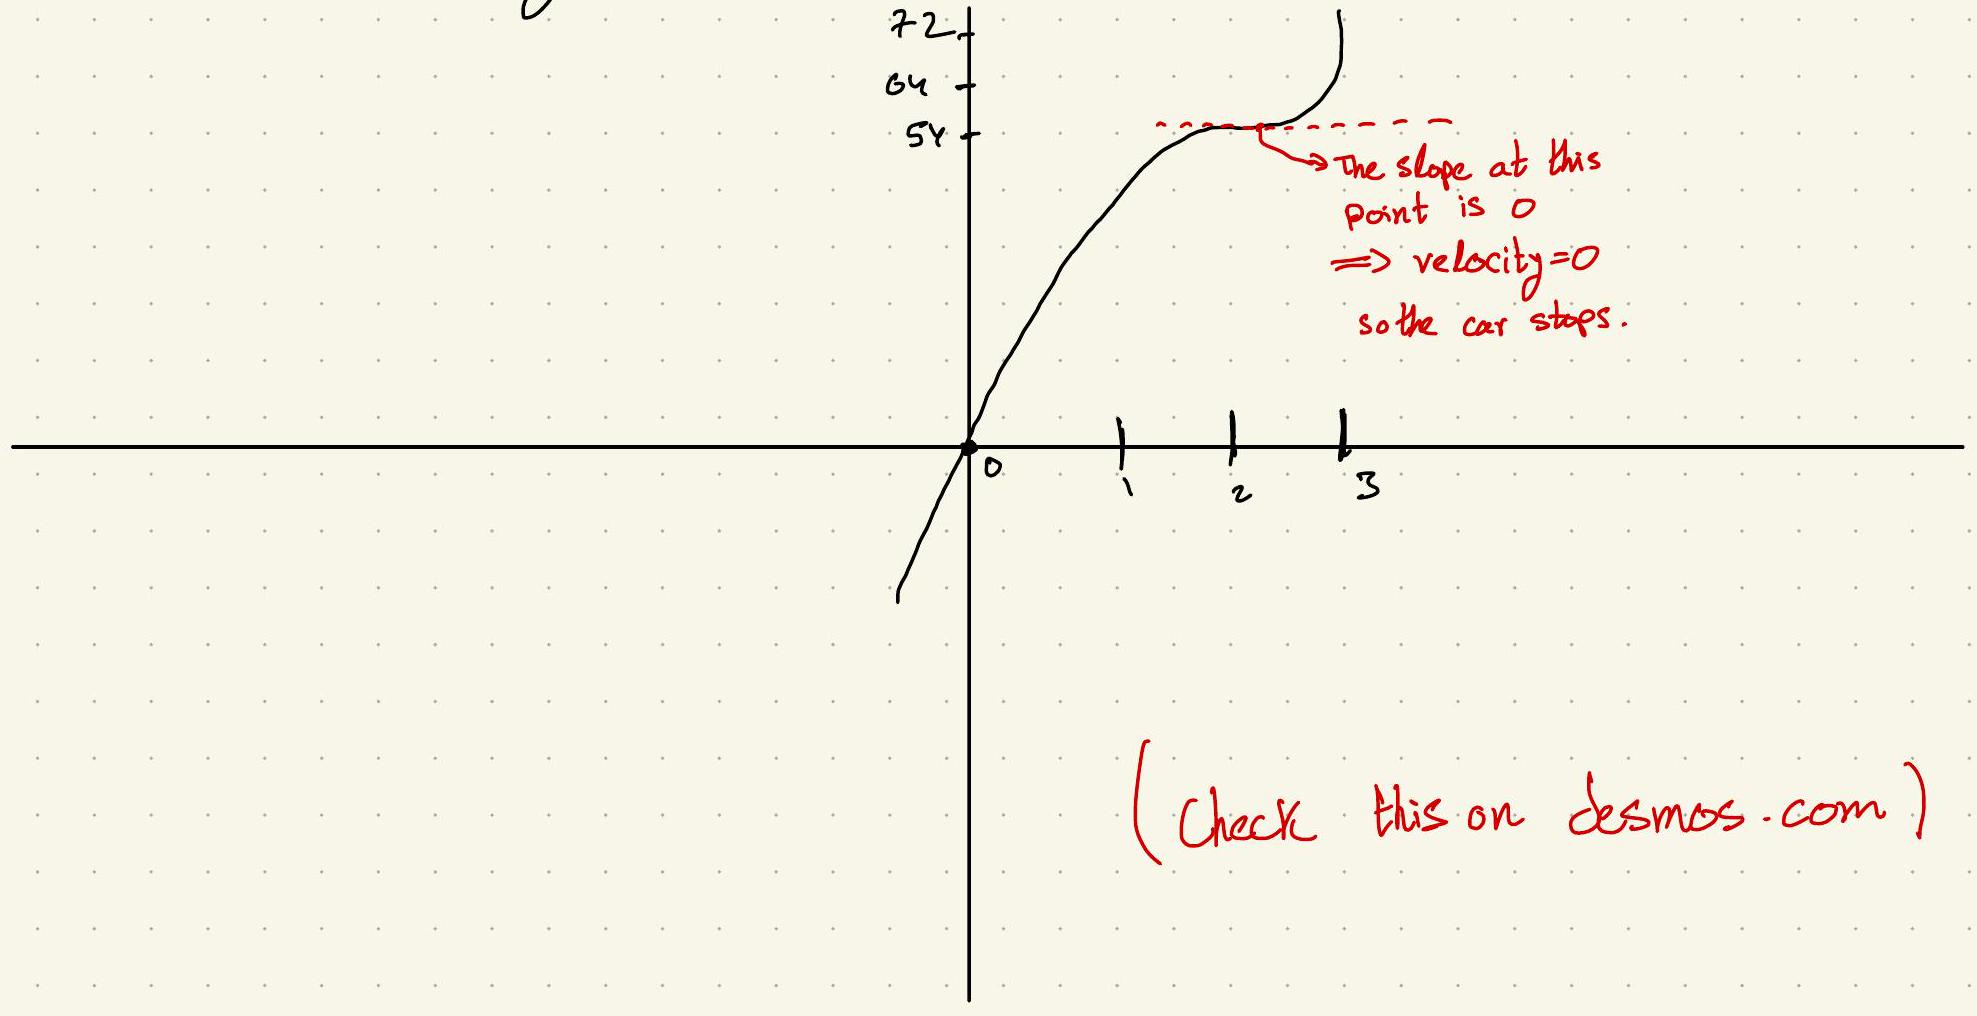 72
64
54
The slope at this
point is 0
⟹ velocity=0
so the car stops.
0
1
2
3
(Check this on desmos.com)